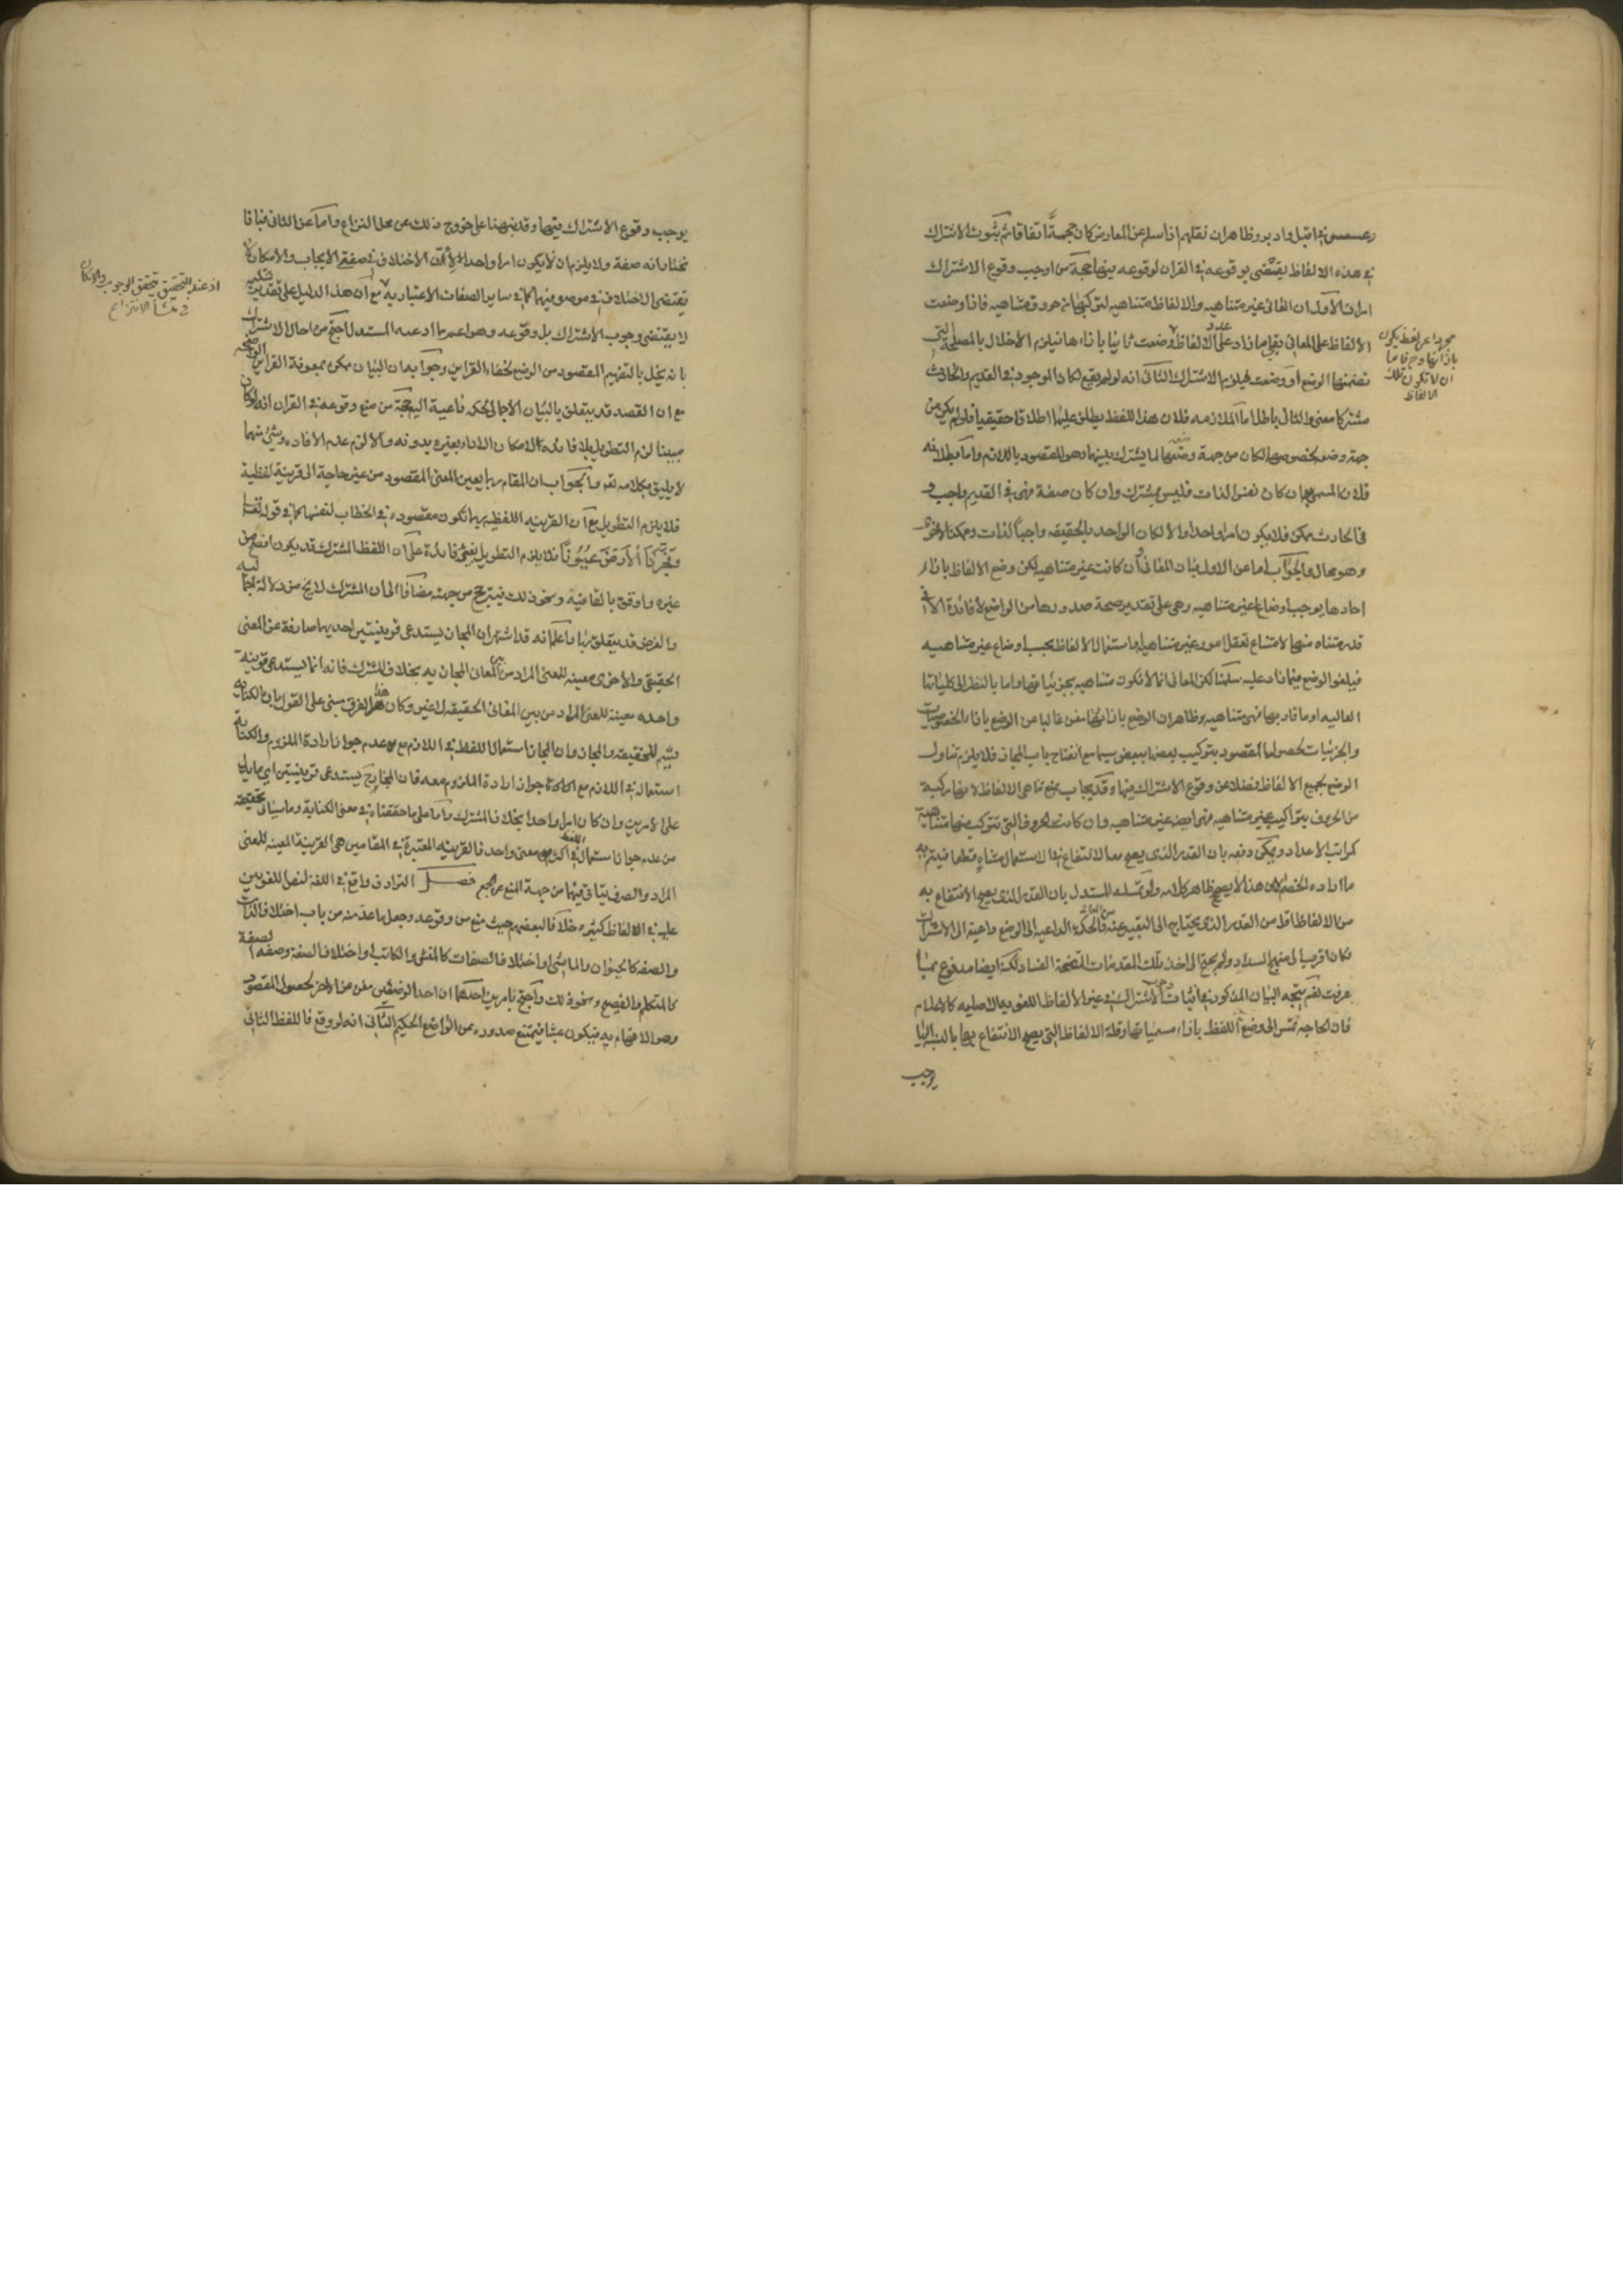 عسعس في اقبل وادبر وظاهر ان نقلهم اذا سلم عن المعارض كان حجة اتفاقا ثم ثبوت الاشتراك
في هذه الالفاظ يقتضي بوقوعه في القران لوقوعه فيها حجة من اوجب وقوع الاشتراك
امران الاول ان المعاني غير متناهيه والالفاظ متناهيه لتركبها من حروف متناهيه فاذا وضعت
الالفاظ على المعاني بقي ما زاد على عدد الالفاظ وضعت ثانيا بازاءها فيلزم الاخلال بالمصلحة التي
تضمنها الوضع او وضعت فيلزم الاشتراك الثاني انه لو لم يقع لكان الموجود في القديم والحادث
مشتركا معنى والتالي باطل اما الملازمه فلان هذا اللفظ يطلق عليهما اطلاقا حقيقيا فلو لم يكن من
جهة وضعه لخصوصهما لكان من جهة وضعه لما يشترك بينهما وهو المقصود باللازم واما بطلانه
فلان المسمى به ان كان نفس الذات فليس بمشترك وان كان صفة فهي في القديم واجب و
في الحادث ممكن فلا يكون امرا واحدا والا لكان الواحد بالحقيقه واجبا لذات وممكنا لاخرى
وهو محال والجواب اما عن الاول فبان المعاني وان كانت غير متناهيه لكن وضع الالفاظ بازاء
احادها يوجب اوضاعا غير متناهيه وهي على تقدير صحة صدورها من الواضع لا فائدة الا في
قدر متناه منها لامتناع تعقل امور غير متناهيه او استعمال الالفاظ بحسب اوضاع غير متناهيه
فيلغو الوضع فيما زاد عليه سلمنا لكن المعاني انما لا تكون متناهيه بجزئياتها واما بالنظر الى كلياتها
العاليه او ما قاربها فهي متناهيه وظاهر ان الوضع بازائها مغن غالبا عن الوضع بازاء الخصوصيات
والجزئيات لحصول المقصود بتركيب بعضها ببعض سيما مع انفتاح باب المجاز فلا يلزم تناول
الوضع بجميع الالفاظ فضلا عن وقوع الاشتراك فيها وقد يجاب بمنع تناهي الالفاظ لانها مركبة
من الحروف بتراكيب غير متناهيه فهي ايضا غير متناهيه وان كانت الحروف التي تتركب منها متناهية
كمراتب الاعداد ويمكن دفعه بان القدر الذي يصح معه الانتفاع في الاستعمال متناه قطعا فيتم به
ما اراده الخصم لكن هذا لا يصحح ظاهر كلامه ولو تمسك المستدل بان القدر الذي يصح الانتفاع به
من الالفاظ اقل من القدر الذي يحتاج الى التعبير عنه من المعاني فالحكمة الداعية الى الوضع داعية الى الاشتراك
لكان اقرب الى منهج السداد ولم يحتج الى اخذ تلك المقدمات المتضحة الفساد لكنه ايضا مدفوع بما
عرفت نعم يتجه البيان المذكور في اثبات وجوب الاشتراك في غير الالفاظ اللغويه الاصليه كالاعلام
فان الحاجه تمس الى وضع اللفظ بازاء مسمياتها وقلة الالفاظ التي يصح الانتفاع بها بالنسبه اليها
يوجب
مجردا عن لفظ يكون
بازائها وجزافا ما
ان لا تكون تلك
الالفاظ
يوجب وقوع الاشتراك فيها وقد نبهنا على خروج ذلك عن محل النزاع واما عن الثاني فبانا
نختار انه صفة ولا يلزم ان لا يكون امرا واحدا لان الاختلاف في صفتي الايجاب والامكان لا
يقتضي الاختلاف في موصوفيهما كما في ساير الصفات الاعتباريه مع ان هذا الدليل على تقدير تسليمه
لا يقتضي وجوب الاشتراك بل وقوعه وهو اعم مما ادعيه المستدل احتج من احال الاشتراك
بانه يخل بالتفهيم المقصود من الوضع لخفاء القراين وجوابه ان البيان ممكن بمعونة القراين الواضحه
مع ان القصد قد يتعلق بالبيان الاجمالي لحكمة داعية اليه حجة من منع وقوعه في القران انه لو كان
مبينا لزم التطويل بلا فائدة لامكان الاداء بغيره بدونه والا لزم عدم الافاده وشئ منهما
لا يليق بكلامه تعه والجواب ان المقام ربما يعين المعنى المقصود من غير حاجة الى قرينة لفظية
فلا يلزم التطويل مع ان القرينه اللفظيه ربما تكون مقصوده في الخطاب لنفسها كما في قوله تعالى
وَفَجَّرْنَا الْاَرْضَ عُيُونًا فلا يلزم التطويل بغير فائدة على ان اللفظ المشترك قد يكون افصح من
غيره واوفق بالقافيه ونحو ذلك فيترجح من جهته مضافا الى ان المشترك لا يخ من دلالة اجماليه
والغرض قد يتعلق بها واعلم انه قد اشتهر ان المجاز يستدعي قرينتين احديهما صارفة عن المعنى
الحقيقي والاخرى معينه للمعنى المراد من بين المعاني المجازيه بخلاف المشترك فانه انما يستدعي قرينة
واحده معينة للمعنى المراد من بين المعاني الحقيقه لا غير وكان هذا الفرق مبني على القول بان الكنايه
قسيم للحقيقه والمجاز وان المجاز استعمال اللفظ في اللازم مع عدم جواز ارادة الملزوم والكناية
استعماله في اللازم مع جواز ارادة الملزوم معه فان المجاز ح يستدعي قرينتين اي ما يدل
على الامرين وان كان امرا واحدا بخلاف المشترك واما على ما حققناه في معنى الكناية وما سياتي تحقيقه
من عدم جواز استعمال اللفظ في اكثر من معنى واحد فالقرينه المعتبرة في المقامين هي القرينة المعينه للمعنى
المراد والصرف يتاتي فيهما من جهة المنع عن الجمع فصل الترادف واقع في اللغة لنص اللغويين
عليه في الالفاظ كثيره خلافا لبعضهم حيث منع من وقوعه وجعل ما عد منه من باب اختلاف الذات
والصفه كالحيوان والماشي او اختلاف الصفات كالمنشي والكاتب او اختلاف الصفة وصفة الصفة
كالمتكلم والفصيح ونحو ذلك واحتج بامرين احدهما ان احد الوضعين مغن عن الاخر لحصول المقصود
وهو الافهام به فيكون عبثا فيمتنع صدوره من الواضع الحكيم الثاني انه لو وقع فاللفظ الثاني
اذ عند التحقيق يتحقق الوجوب والامكان
في منشأ الانتزاع